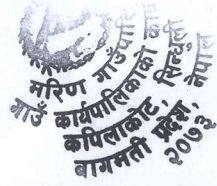 मरिण गाउँपालिका
गाउँ कार्यपालिकाको
कपिलाकोट, सिन्धुली
बागमती प्रदेश, नेपाल
२०७३